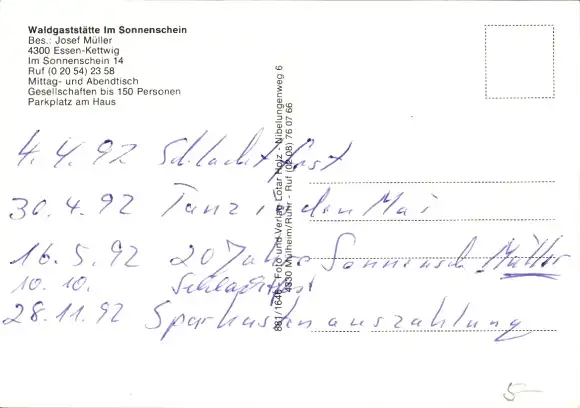 Waldgaststätte Im Sonnenschein
Bes.: Josef Müller
4300 Essen-Kettwig
Im Sonnenschein 14
Ruf (0 20 54) 23 58
Mittag- und Abendtisch
Gesellschaften bis 150 Personen
Parkplatz am Haus
4.4.92 Schlachtfest
30.4.92 Tanz in den Mai
16.5.92 20 Jahre Sonnensch. Müller
10.10. Schlachtfest
28.11.92 Sparkastenauszahlung
881/1646 - Foto und Verlag Lotar Holz - Nibelungenweg 6
4330 Mülheim/Ruhr - Ruf (02 08) 76 07 66
5-